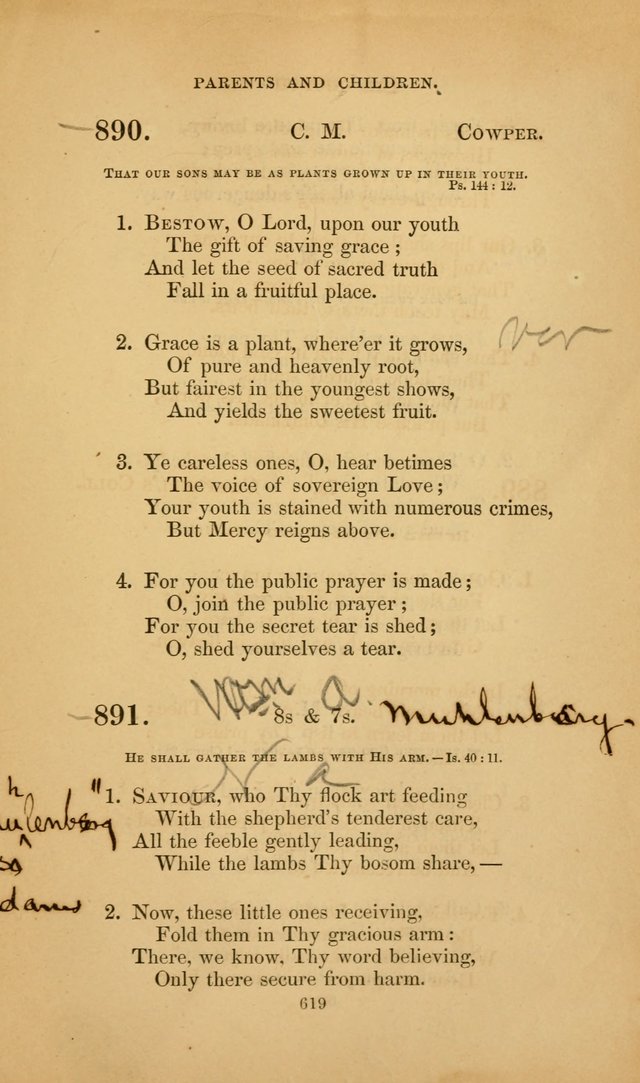 PARENTS AND CHILDREN.
890. C. M. COWPER.
THAT OUR SONS MAY BE AS PLANTS GROWN UP IN THEIR YOUTH.
Ps. 144 : 12.
1. BESTOW, O Lord, upon our youth
The gift of saving grace ;
And let the seed of sacred truth
Fall in a fruitful place.
2. Grace is a plant, where'er it grows,
Of pure and heavenly root,
But fairest in the youngest shows,
And yields the sweetest fruit.
3. Ye careless ones, O, hear betimes
The voice of sovereign Love ;
Your youth is stained with numerous crimes,
But Mercy reigns above.
4. For you the public prayer is made ;
O, join the public prayer ;
For you the secret tear is shed ;
O, shed yourselves a tear.
891. 8s & 7s. Muhlenberg.
HE SHALL GATHER THE LAMBS WITH HIS ARM. — Is. 40 : 11.
1. SAVIOUR, who Thy flock art feeding
With the shepherd's tenderest care,
All the feeble gently leading,
While the lambs Thy bosom share, —
2. Now, these little ones receiving,
Fold them in Thy gracious arm :
There, we know, Thy word believing,
Only there secure from harm.
619